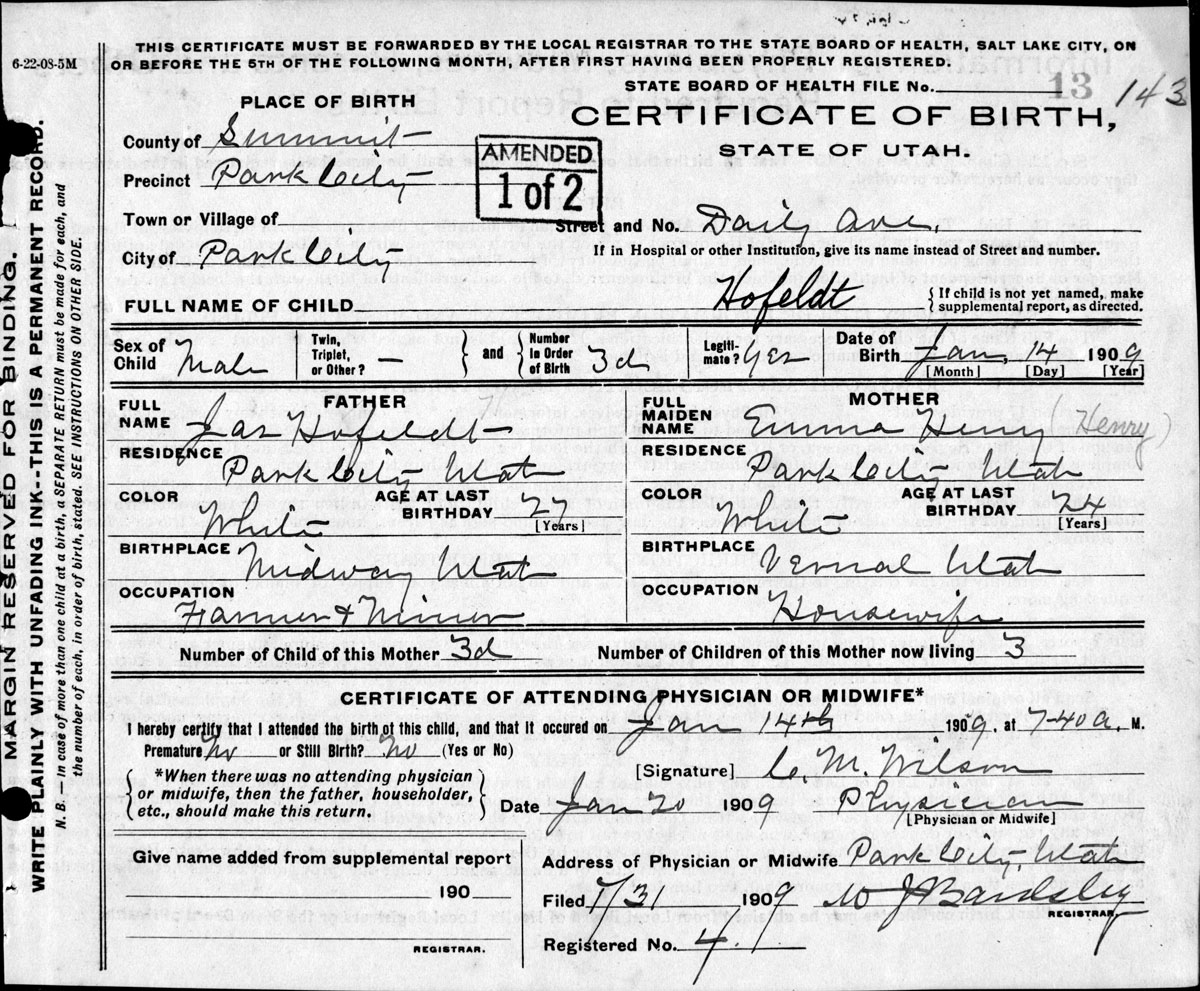 THIS CERTIFICATE MUST BE FORWARDED BY THE LOCAL REGISTRAR TO THE STATE BOARD OF HEALTH, SALT LAKE CITY, ON
6-22-08-5M OR BEFORE THE 5TH OF THE FOLLOWING MONTH, AFTER FIRST HAVING BEEN PROPERLY REGISTERED.
STATE BOARD OF HEALTH FILE No. 13 143
PLACE OF BIRTH
CERTIFICATE OF BIRTH,
STATE OF UTAH.
County of Summit
AMENDED
1 of 2
Precinct Park City
Town or Village of
Street and No. Daily Ave.
City of Park City
If in Hospital or other Institution, give its name instead of Street and number.
FULL NAME OF CHILD Hofeldt { If child is not yet named, make
supplemental report, as directed.
Sex of Child Male
Twin, Triplet, or Other? —
and
Number In Order of Birth 3d
Legiti-mate? Yes
Date of Birth Jan. 14 1909
[Month] [Day] [Year]
FATHER
FULL NAME Jas Hofeldt
RESIDENCE Park City Utah
COLOR White
AGE AT LAST BIRTHDAY 27 [Years]
BIRTHPLACE Midway Utah
OCCUPATION Farmer & Miner
MOTHER
FULL MAIDEN NAME Emma Henry (Henry)
RESIDENCE Park City Utah
COLOR White
AGE AT LAST BIRTHDAY 24 [Years]
BIRTHPLACE Vernal Utah
OCCUPATION Housewife
Number of Child of this Mother 3d
Number of Children of this Mother now living 3
CERTIFICATE OF ATTENDING PHYSICIAN OR MIDWIFE*
I hereby certify that I attended the birth of this child, and that it occured on Jan 14th 1909, at 7-40 a. M.
Premature? No or Still Birth? No (Yes or No)
*When there was no attending physician
or midwife, then the father, householder,
etc., should make this return.
[Signature] C. M. Wilson
Date Jan 20 1909 Physician
[Physician or Midwife]
Give name added from supplemental report
190
REGISTRAR.
Address of Physician or Midwife Park City Utah
Filed 1/31 1909 W J Bardsley
REGISTRAR.
Registered No. 4.
MARGIN RESERVED FOR BINDING.
WRITE PLAINLY WITH UNFADING INK--THIS IS A PERMANENT RECORD.
N. B. — In case of more than one child at a birth, a SEPARATE RETURN must be made for each, and
the number of each, in order of birth, stated. SEE INSTRUCTIONS ON OTHER SIDE.